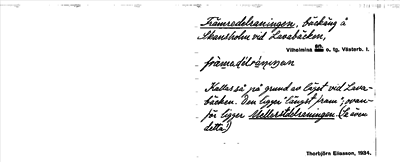 Främredelraningen, bäckäng å
Skansholm vid Lavabäcken,
Vilhelmina sn o. tg. Västerb. l.
Kallas så på grund av läget vid Lava-
bäcken. Den ligger "längst fram", ovan-
för ligger Mellerstdelraningen (se även
detta!)
Thorbjörn Eliasson, 1934.